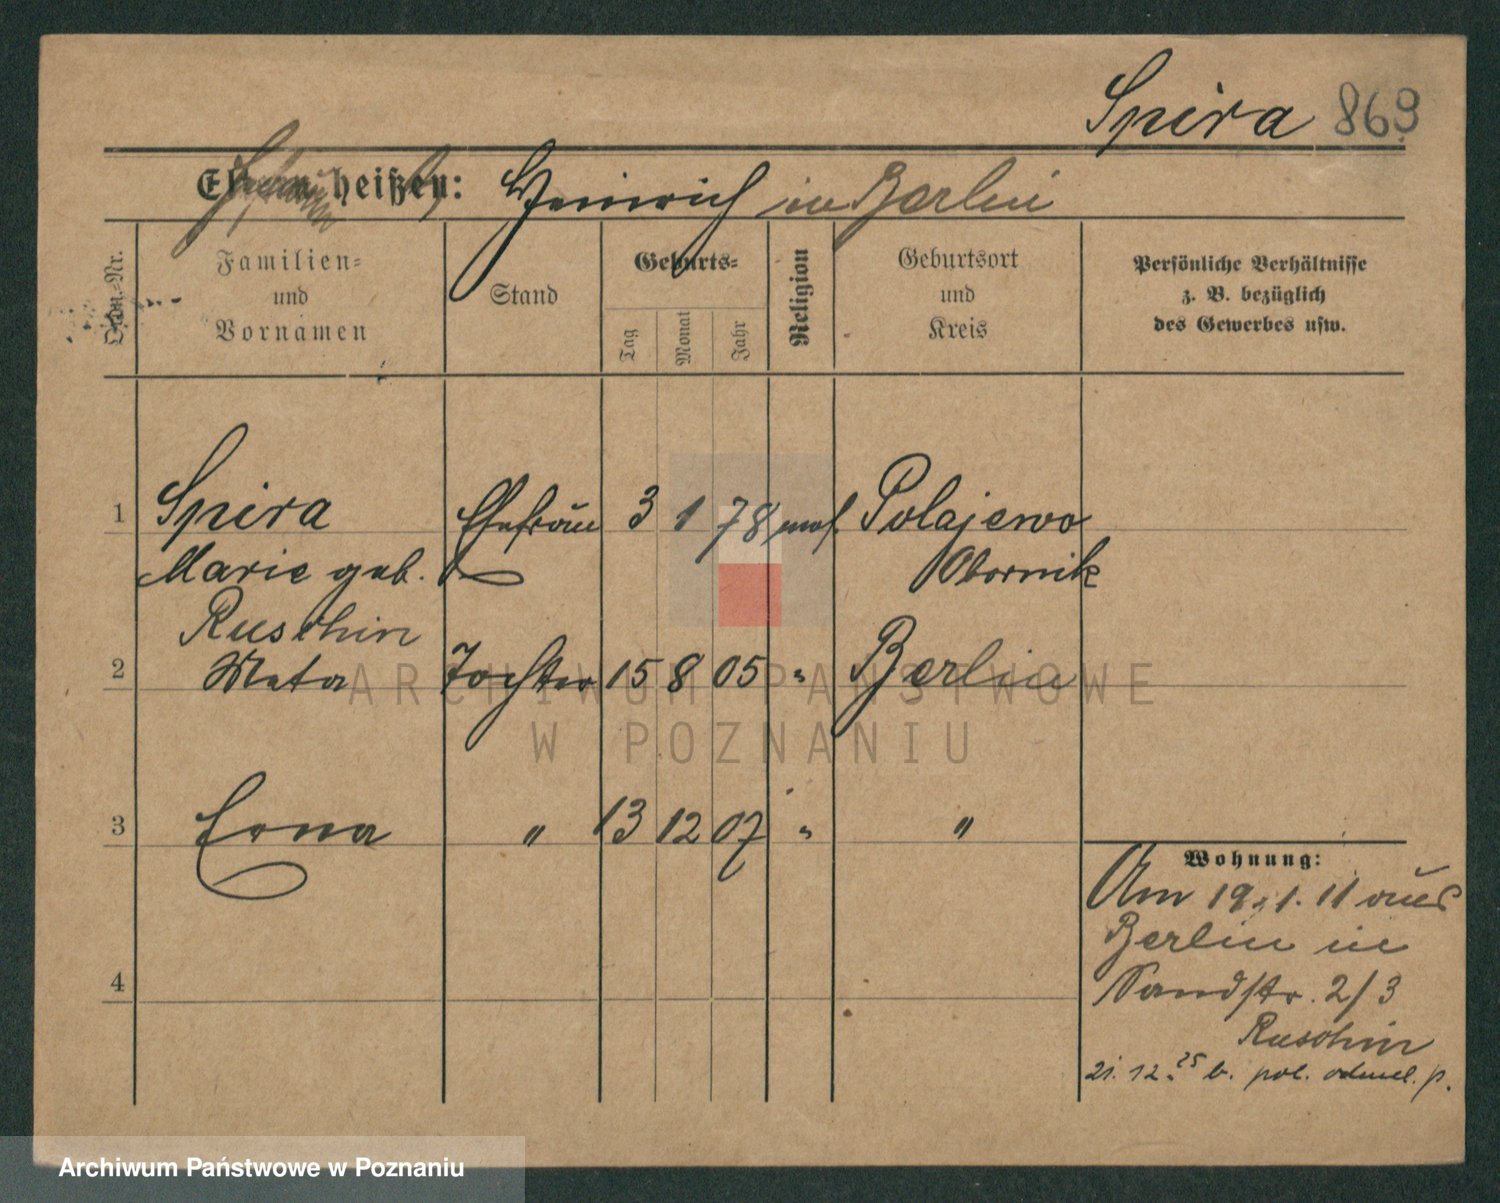 Spira 869
heißen: Heinrich in Berlin
Ordn.-Nr.
Familien-
und
Vornamen
Stand
Geburts-
Tag
Monat
Jahr
Religion
Geburtsort
und
Kreis
Persönliche Verhältnisse
z. B. bezüglich
des Gewerbes usw.
1 Spira Ehefrau 3 1 78 mos. Polajewo
Marie geb. Obornik
Ruschin
2 Meta Tochter 15 8 05 " Berlin
3 Erna " 13 12 07 " "
Wohnung:
Am 19.1.11 aus
Berlin in
Sandstr. 2/3
Ruschin
4
21. 12. 25 b. pol.
ARCHIWUM PAŃSTWOWE
W POZNANIU
Archiwum Państwowe w Poznaniu